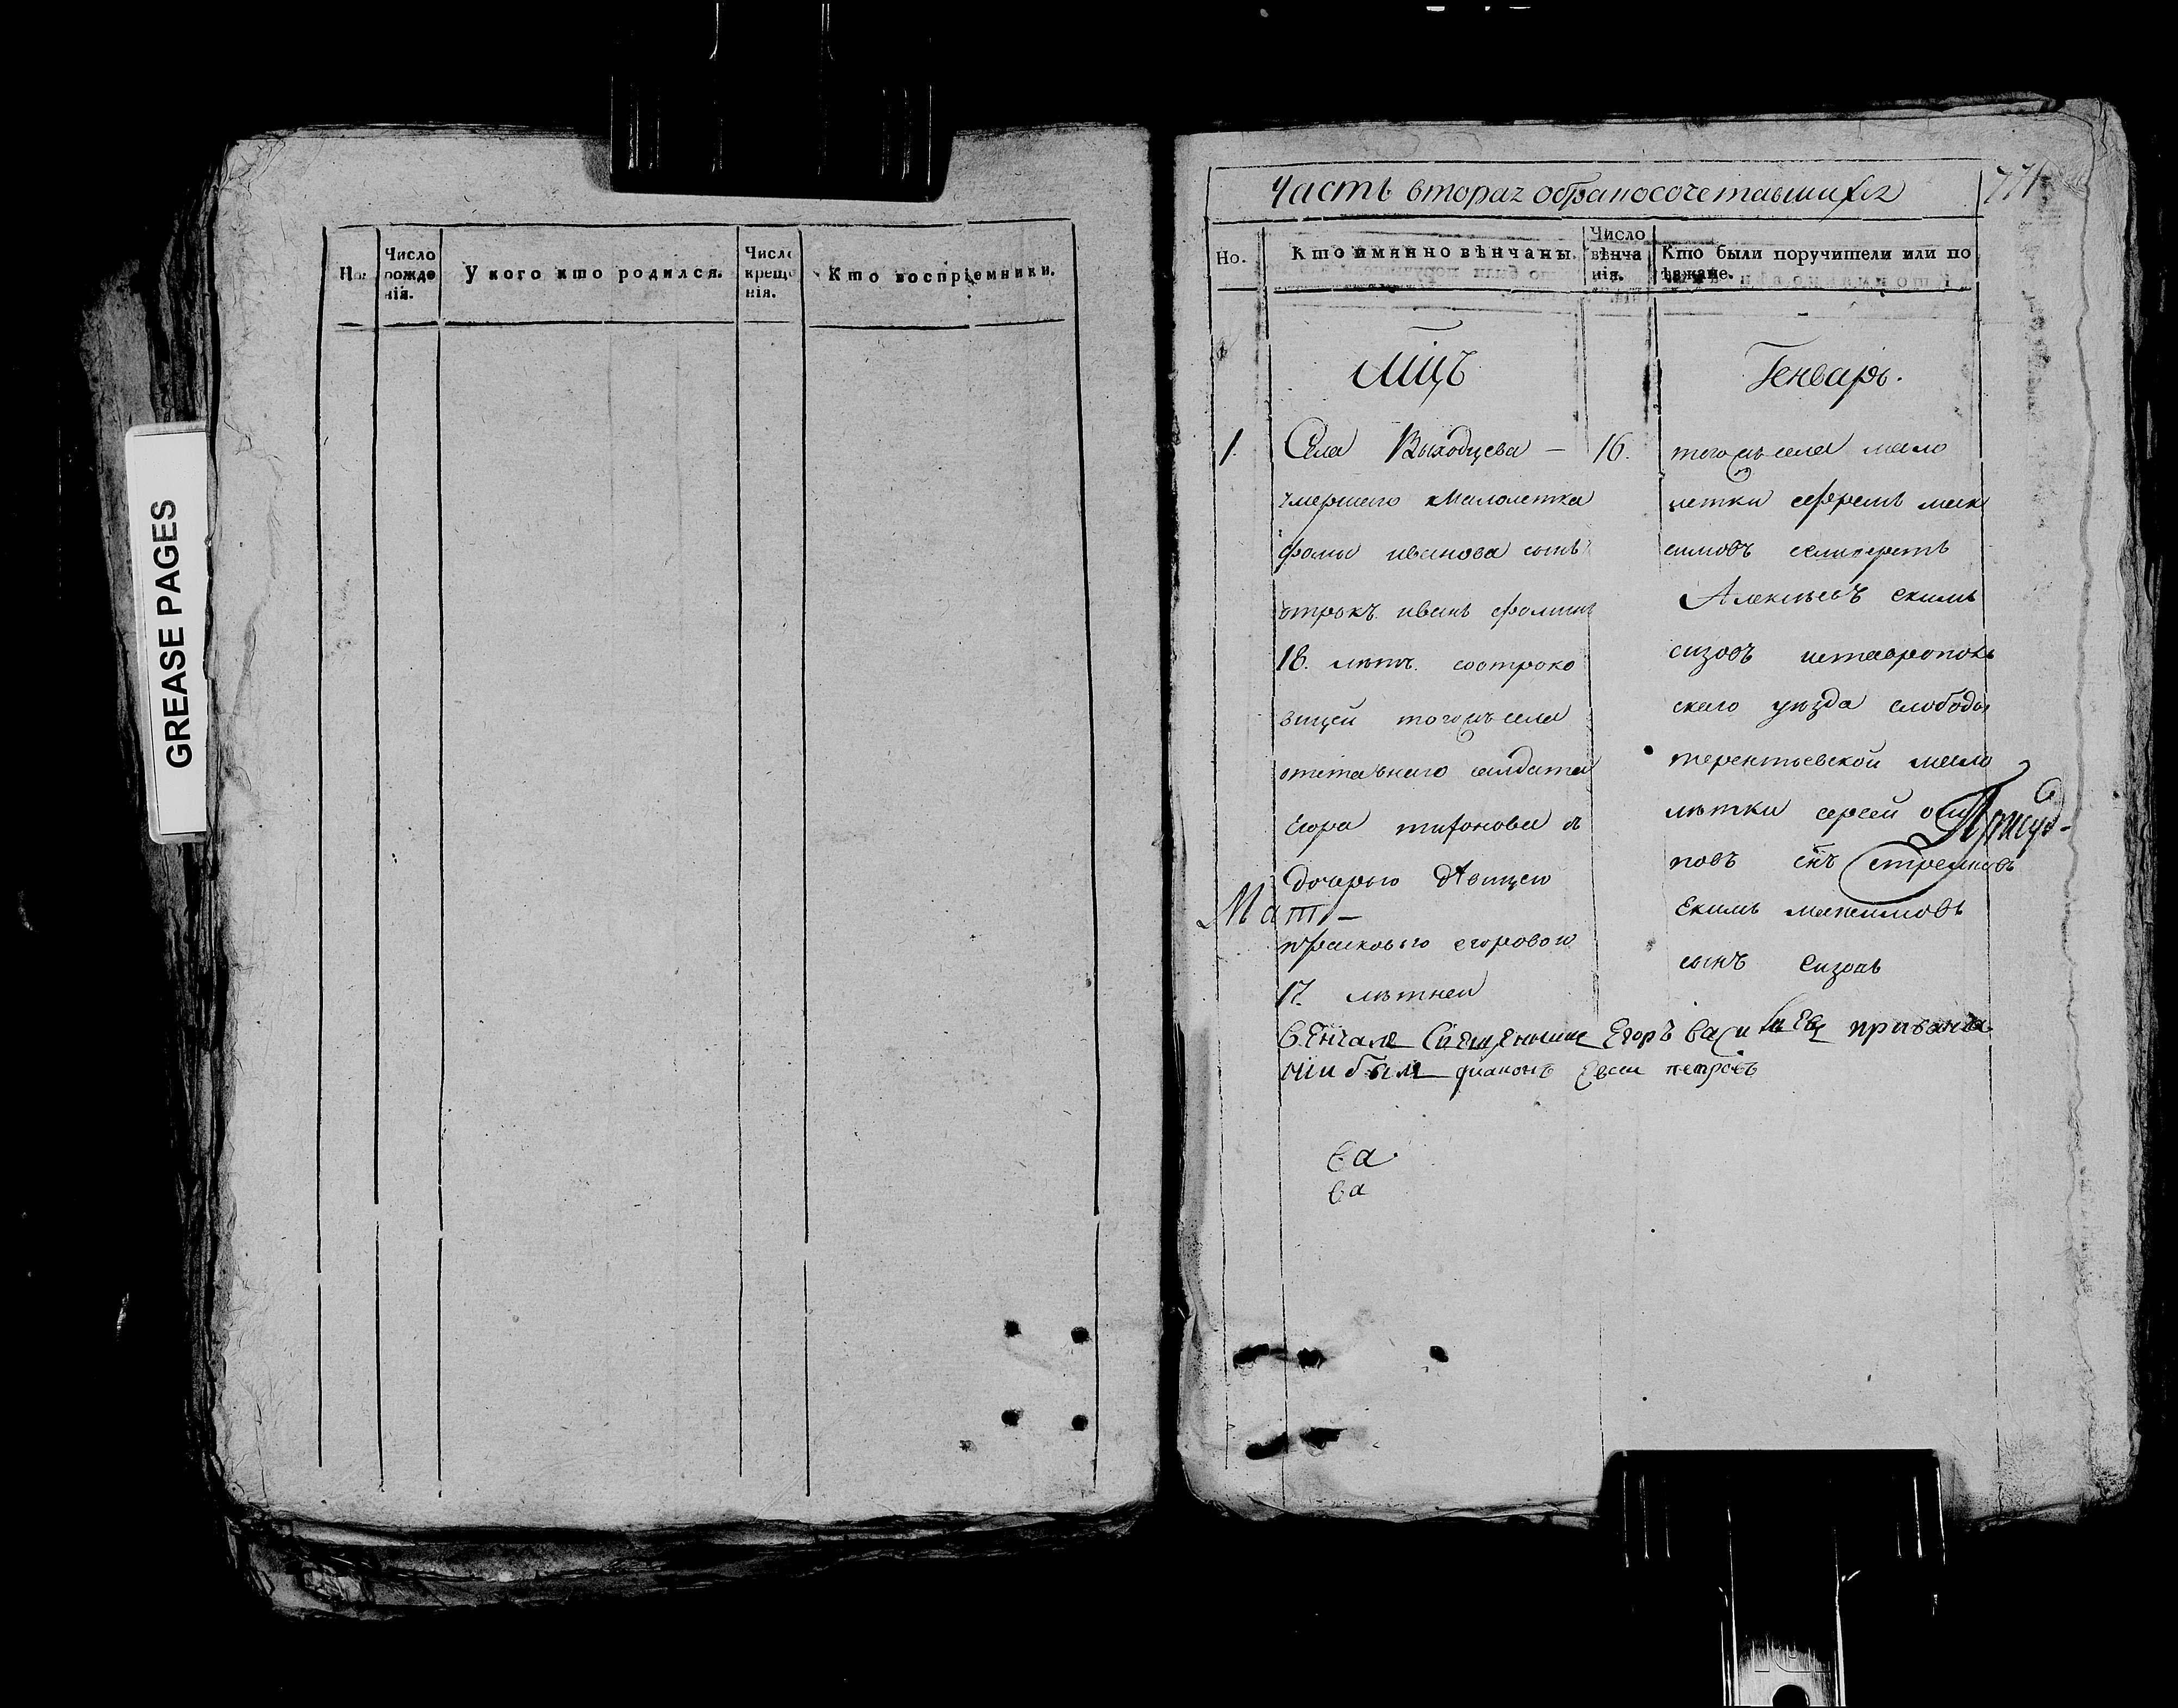 GREASE PAGES
Но.
Число рожденія.
У кого кто родился.
Число крещенія.
Кто воспріемники.
Часть вторая обраносочетавшихся
771
Но.
Кто имянно вѣнчаны.
Число вѣнчанія.
Кто были поручители или поѣзжане.
Мцъ
Генварь.
1.
Села Выходцева —
умершаго малолетка
фомы иванова сынъ
отрокъ иванъ фоминъ
18. лѣтъ. соотроко
вицей тогожъ села
отставнаго салдата
Егора
дочерью девицею
прасковьею егоровою
17. лѣтнеи
16.
тогожъ села мало
летки ефремъ мак
симовъ
Алексѣевъ екимъ
сизовъ иставрополь
скаго уѣзда слободы
терентьевской мало
лѣтки сергей оси
повъ сынъ
Екимъ максимовъ
сынъ Сизовъ
Мат —
Венчалъ Священникъ Егоръ Васильевъ привенча
нии былъ диаконъ петровъ
ва
ва